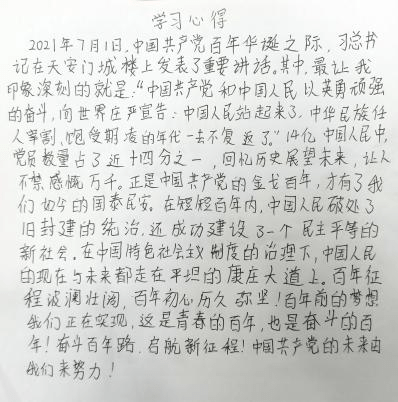 学习心得
2021年7月1日,中国共产党百年华诞之际,习总书
记在天安门城楼上发表了重要讲话。其中,最让我
印象深刻的就是:“中国共产党和中国人民以英勇顽强
的奋斗,向世界庄严宣告:中国人民站起来了,中华民族任
人宰割、饱受期凌的年代一去不复返了。”14亿中国人民中,
党员数量占了近十四分之一,回忆历史展望未来,让人
不禁感慨万千。正是中国共产党的金戈百年,才有了我
们如今的国泰民安。在短短百年内,中国人民破处了
旧封建的统治,还成功建设了一个民主平等的
新社会。在中国特色社会主义制度的治理下,中国人民
的现在与未来都走在平坦的康庄大道上。百年征
程波澜壮阔,百年初心历久弥坚!百年前的梦想
我们正在实现,这是青春的百年,也是奋斗的百
年!奋斗百年路,启航新征程!中国共产党的未来由
我们来努力!